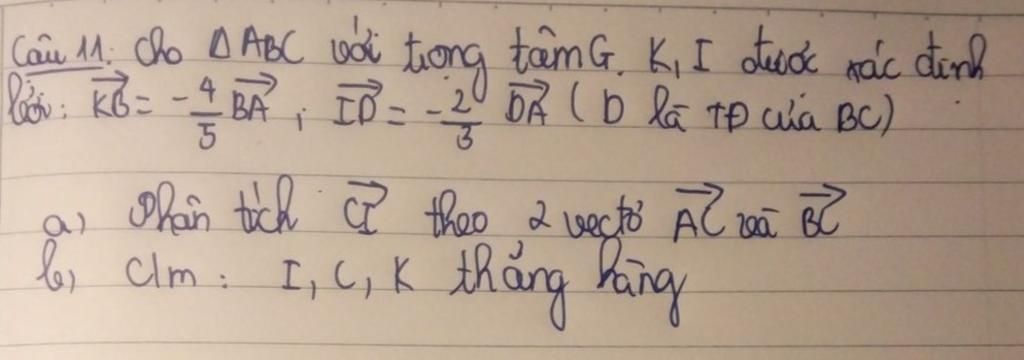 Câu 11: Cho Δ ABC với trọng tâm G. K, I được xác định
bởi: \overrightarrow{KB} = -\frac{4}{5} \overrightarrow{BA} ; \overrightarrow{ID} = -\frac{2}{3} \overrightarrow{DA} ( D là TĐ của BC)
a) Phân tích \overrightarrow{CI} theo 2 vectơ \overrightarrow{AC} và \overrightarrow{BC}
b) Cm : I, C, K thẳng hàng